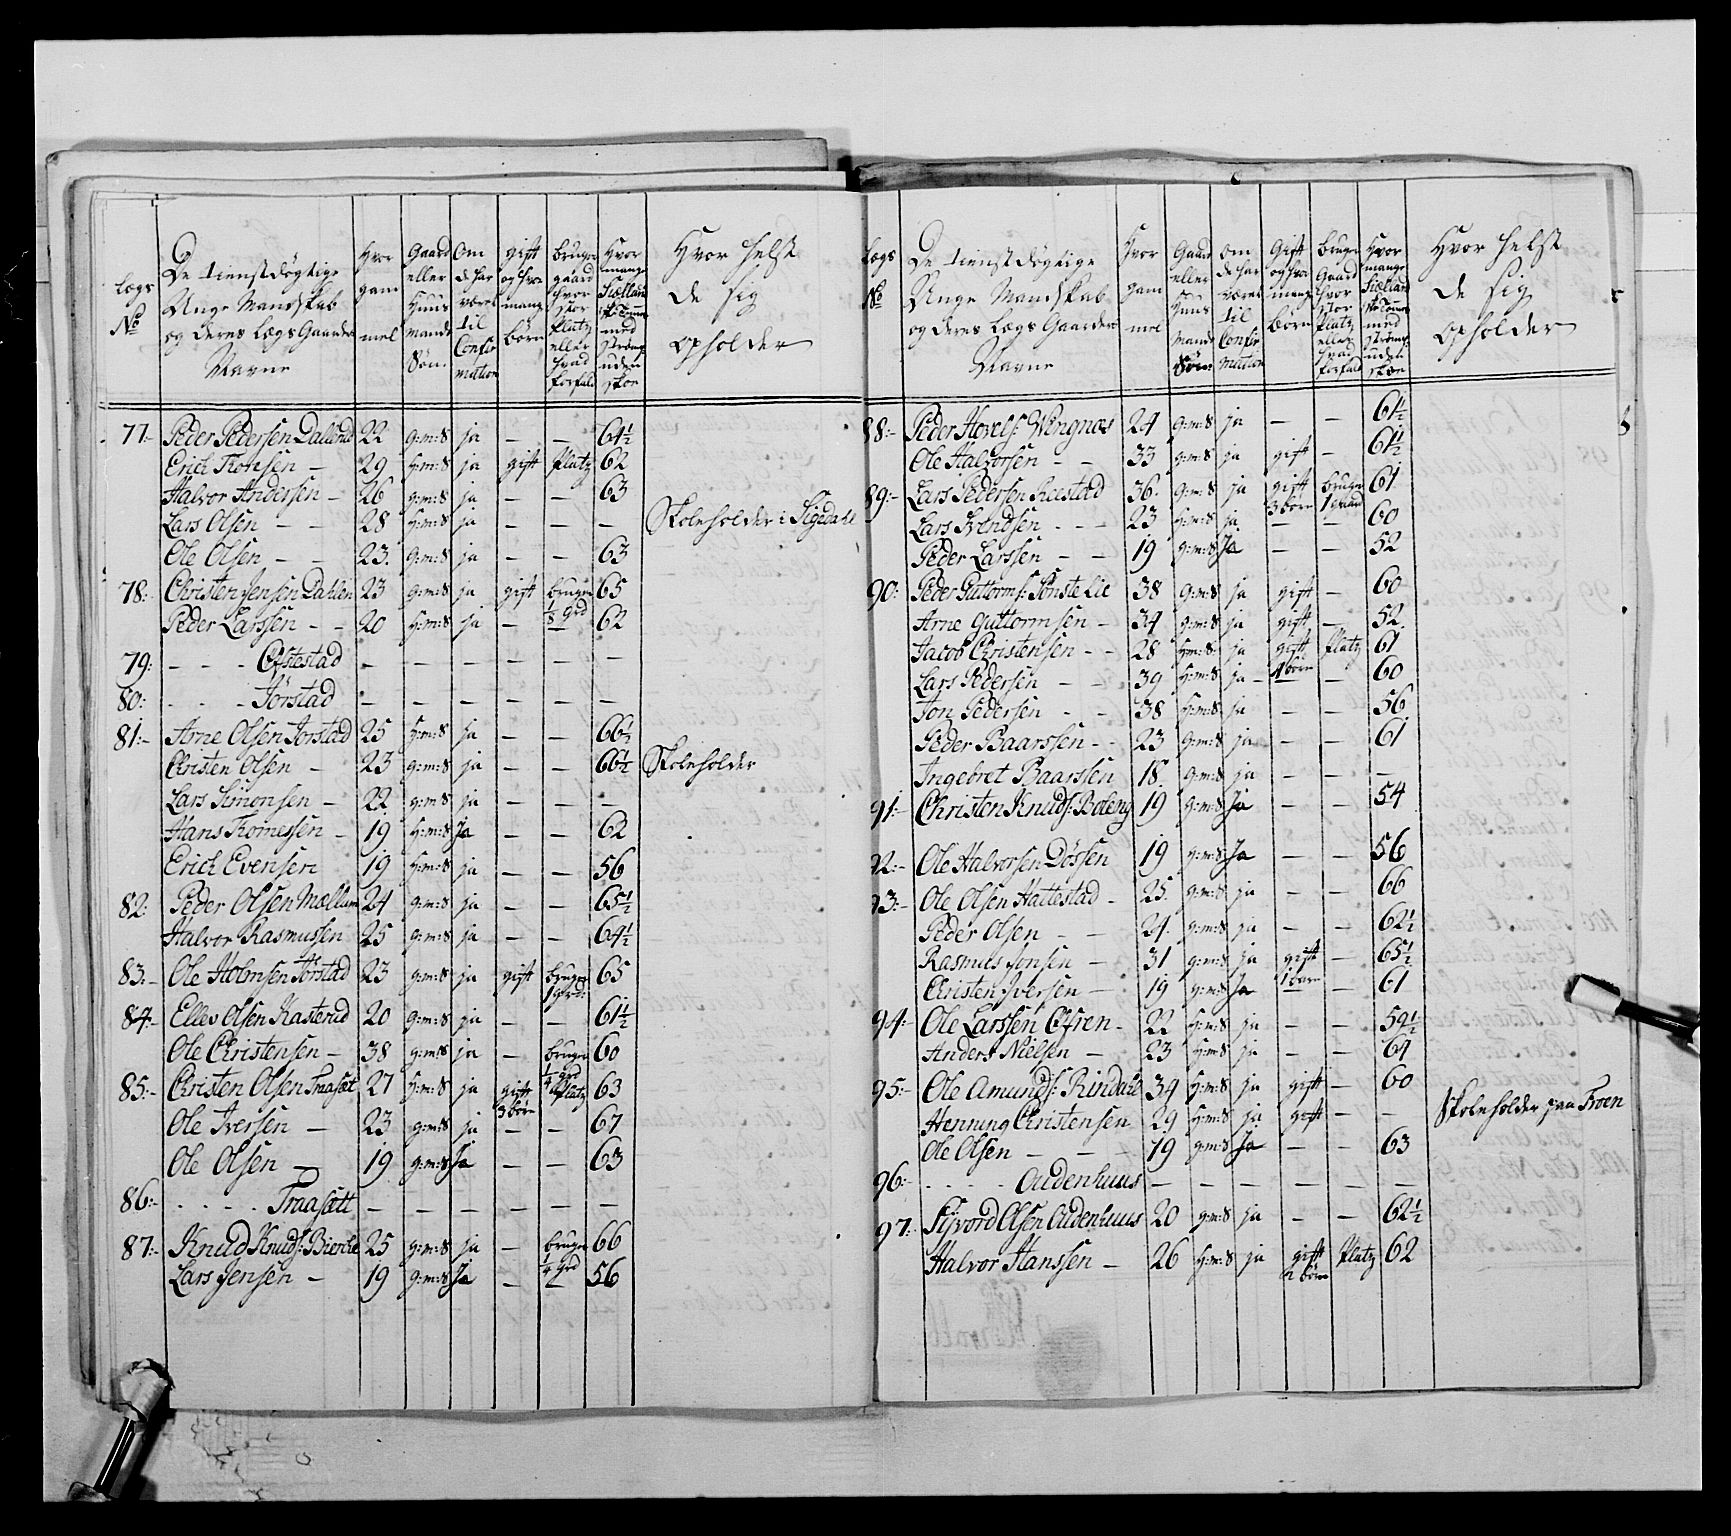 Lægs No | De tienstdögtige Unge Mandskab og deres Lægs Gaarders Navne | Hvor gammel | Gaard eller Huusmands Søn. | Om de har været til Confirmation | gift og hvor mange börn | bruger gaard hvor stor Platz eller hvad forfald | Hvor mange Siællands Tomer med strömper uden skoe | Hvor helst de sig opholder
77:- Peder Pedersen Dalerud 22 g:m:S ja – – 64½
Erich Tronsen – 29 h:m:S ja gift Platz 62
Halvor Andersen – 26 g:m:S ja – – 63
Lars Olsen – – 28 h:m:S ja – – – Skoleholder i Sigedahl
Ole Olsen – – 23. g:m:S ja – – 63
78:- Christen Jensen Dahlen 23 g:m:S ja gift bruger ⅛ grd 65
Peder Larssen – – 20 h:m:S ja – – 62
79: – – – Efstestad – – – – – –
80: – – – Jörstad – – – – – –
81:- Arne Olsen Jorstad 25 h:m:S ja – – 66½
Christen Olsen – 23 g:m:S ja – – 66½ Skoleholder
Lars Simonsen – 22 g:m:S ja – – –
Hans Tromessen – 19 h:m:S Ja – – 62
Erich Evensen 19 h:m:S ja – – 56
82: Peder Olsen Mællum 24 g:m:S ja – – 65½
Halvor Rasmussen 25 g:m:S ja – – 64½
83:- Ole Holmsen Törstad 23 g:m:S ja gift bruger 1 grd: 65
84:- Ellev Olsen Kasterud 20 g:m:S ja – – 61½
Ole Christensen – 38 g:m:S ja – bruger ¼ grd 60
85:- Christen Olsen Traaset 27 h:m:S ja gift 3 börn Platz 63
Ole Iversen – 23 g:m:S ja – – 67
Ole Olsen – 19 g:m:S Ja – – 63
86:- – – – – Traasett – – – – – –
87:- Knud Knuds: Bierche 25 g:m:S ja – bruger ¼ grd 66
Lars Jensen – 19 g:m:S Ja – – 56
Lægs No | De tienstdögtige Unge Mandskab og deres Lægs Gaarder Navne | Hvor gammel | Gaard eller Huusmands Søn: | Om de har været til Confirmation | Gift og hvor mange börn | bruger Gaard hvor stor Platz eller hvad forfald | Hvor mange Siællands Tomer med strömper uden skoe | Hvor helst de sig opholder
88:- Peder Hovels: Wengnæs 24 g:m:S ja – – 61½
Ole Halvorsen – – 33 g:m:S ja gift – 61½
89:- Lars Pedersen Reestad 36. g:m:S ja gift 3 börn bruger 1 gaard 61
Lars Svendsen – – – 23 h:m:S ja – – 60
Peder Larssen – – 19 g:m:S Ja – – 52
90: Peder Guttorms: Sönste Lie 38 g:m:S ja gift – 60
Arne Guttormsen – 34 g:m:S ja gift – 52.
Jacob Christensen – – 28 h:m:S ja gift 4 börn Platz 61
Lars Pedersen – – 39 h:m:S ja – – 60
Jon Pedersen – – 38 h:m:S ja – – 56
Peder Baarssen – – 23 g:m:S ja – – 61
Ingebret Baarssen 18. g:m:S ja – – –
91:- Christen Knuds: Boleng 19 g:m:S Ja – – 54
92:- Ole Halvorsen Dössen 19 h:m:S Ja – – 56
93:- Ole Olsen Hattestad – 25. g:m:S ja – – 66
Peder Olsen – – 24. g:m:S ja – – 62½
Rasmus Jonsen – 31 g:m:S ja gift 1 barn – 65½
Christen Iversen – 19 h:m:S Ja – – 61
94:- Ole Larssen Efren – 22 h:m:S ja – – 59½
Anders Nielsen – 23 h:m:S ja – – 64
95:- Ole Amunds: Rindahl 34 h:m:S ja gift – 60
Henning Christensen 29 h:m:S ja gift – – Skoleholder paa Troen
Ole Olsen – – – 19 g:m:S Ja – – 63
96:- – – – – Oudenhuus – – – – – –
97:- Sifvord Olsen Oudenhuus 20 g:m:S ja – – 62½
Halvor Hanssen – 26 h:m:S ja gift 2 börn Platz 62